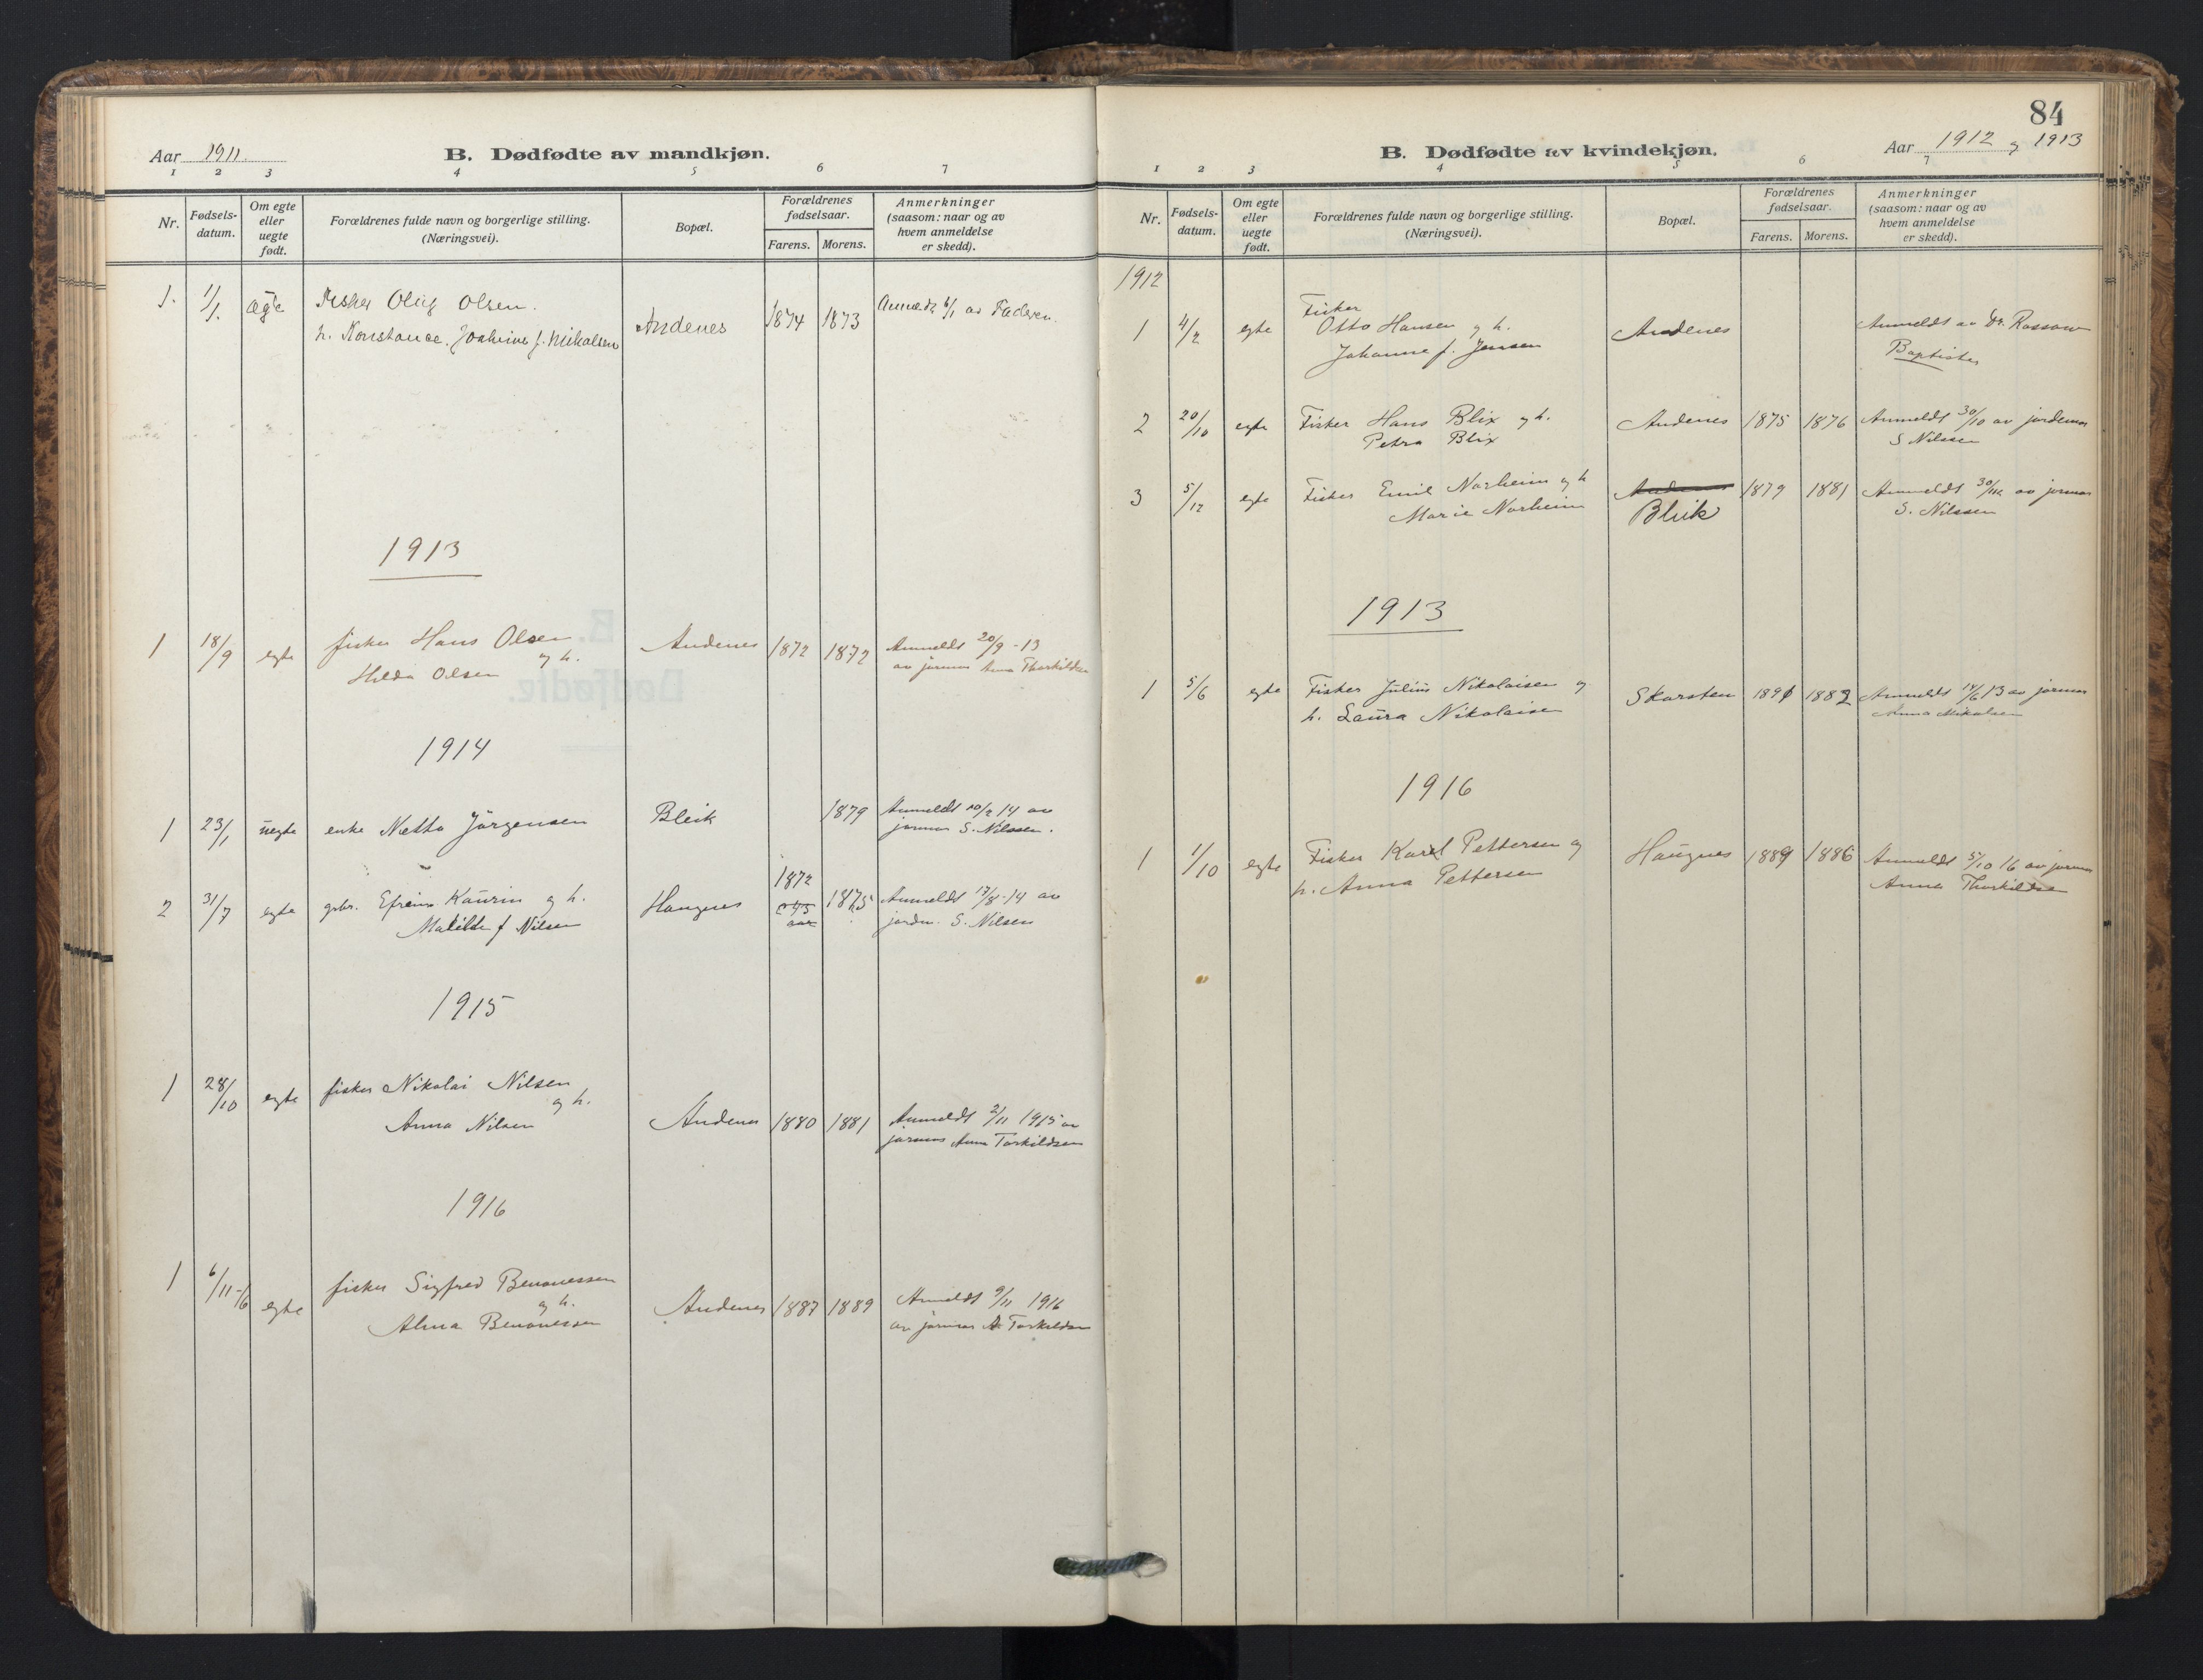 Aar 1911.
B. Dødfødte av mandkjøn.
1 2 3 4 5 6 7
Nr. Fødsels-datum. Om egte eller uegte født. Forældrenes fulde navn og borgerlige stilling. (Næringsvei). Bopæl. Forældrenes fødselsaar. Farens. Morens. Anmerkninger (saasom: naar og av hvem anmeldelse er skedd).
1. 1/1. ægte Fisker Oluf Olsen. Andenes 1874 1873 6/1 av Faderen.
h. Konstance. f. Mikalsen
1913
1 18/9 egte fisker Hans Olsen Andenes 1872 1872 Anmeldt 20/9-13
og h.
Hilda Olsen av jormor Anna Thorkildsen
1914
1 23/1 uegte enke Netta Jörgensen Bleik 1879 Anmeldt 20/2 14 av
jormor S. Nilssen.
2 31/7 egte gbr. Efraim Kaurin og h. Haugnes 1872 1875 Anmeldt 17/8-14 av
Matilde f Nilsen aar jordm. S. Nilsen
1915
1 28/10 egte fisker Nikolai Nilsen
og h.
Anna Nilsen Andenes 1880 1881 Anmeldt 2/11 1915 av
jormor Anna Torkildsen
1916
1 6/11-16 egte fisker Sigfred Benonessen
og h.
Alma Benonessen Andenes 1887 1889 Anmeldt 9/11 1916
av jormor A Torkildsen
84
B. Dødfødte av kvindekjøn.
Aar 1912 og 1913
1 2 3 4 5 6 7
Nr. Fødsels-datum. Om egte eller uegte født. Forældrenes fulde navn og borgerlige stilling. (Næringsvei). Bopæl. Forældrenes fødselsaar. Farens. Morens. Anmerkninger (saasom: naar og av hvem anmeldelse er skedd).
1912
Fisker
1 4/2 egte Otto Hansen og h. Andenes Anmeldt av Dr. Rossow
Johanne f. Jensen Baptister
2 20/10 egte Fisker Hans Blix og h. Andenes 1875 1876 Anmeldt 30/10 av jordemor
Petra Blix S Nilssen
3 5/12 egte Fisker Emil Norheim og h Andenes 1879 1881 Anmeldt av jormor
Marie Norheim Bleik S. Nilssen
1913
1 5/6 egte Fisker Julius Nikolaisen og Skarsten 1882 Anmeldt 14/6 13 av jormor
h. Laura Nikolaisen Anna Mikalsen
1916
1 1/10 egte Fisker Karl Pettersen og Haugnes 1889 1886 Anmeldt 5/10 16 av jormor
h. Anna Pettersen Anna Thorkildsen